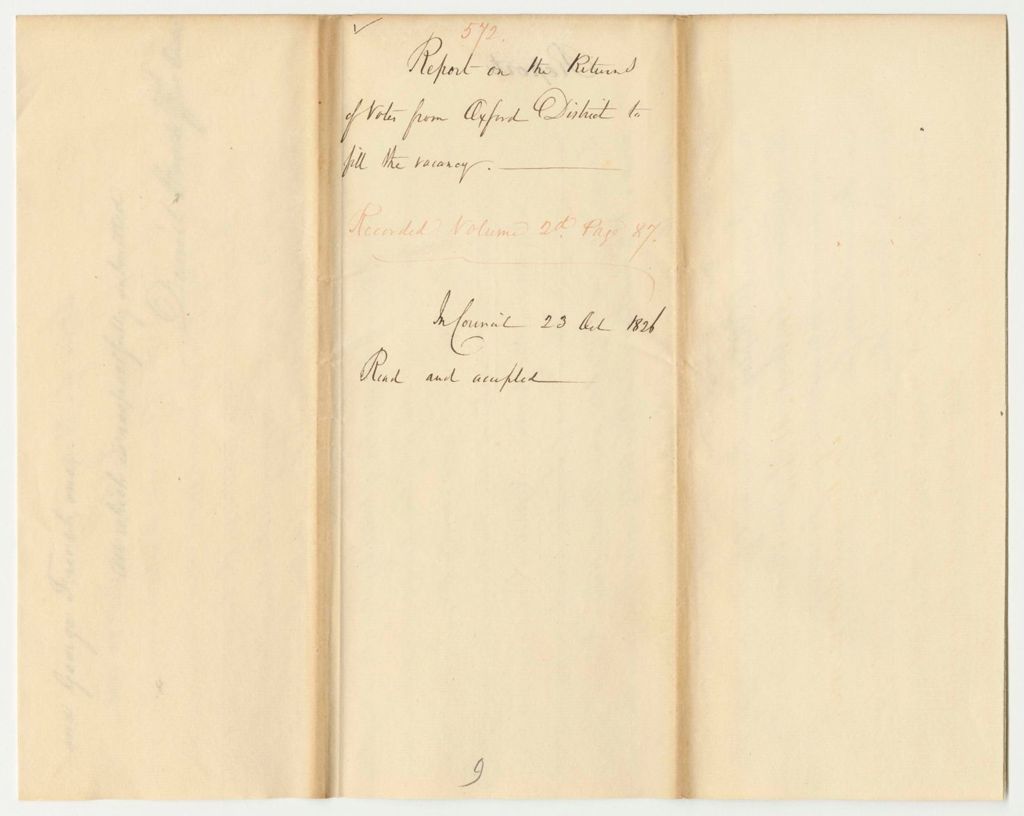 572.
Report on the Returns
of Votes from Oxford District to
fill the vacancy.
Recorded Volume 2d. Page 87.
In Council 23 Oct 1826
Read and accepted
9